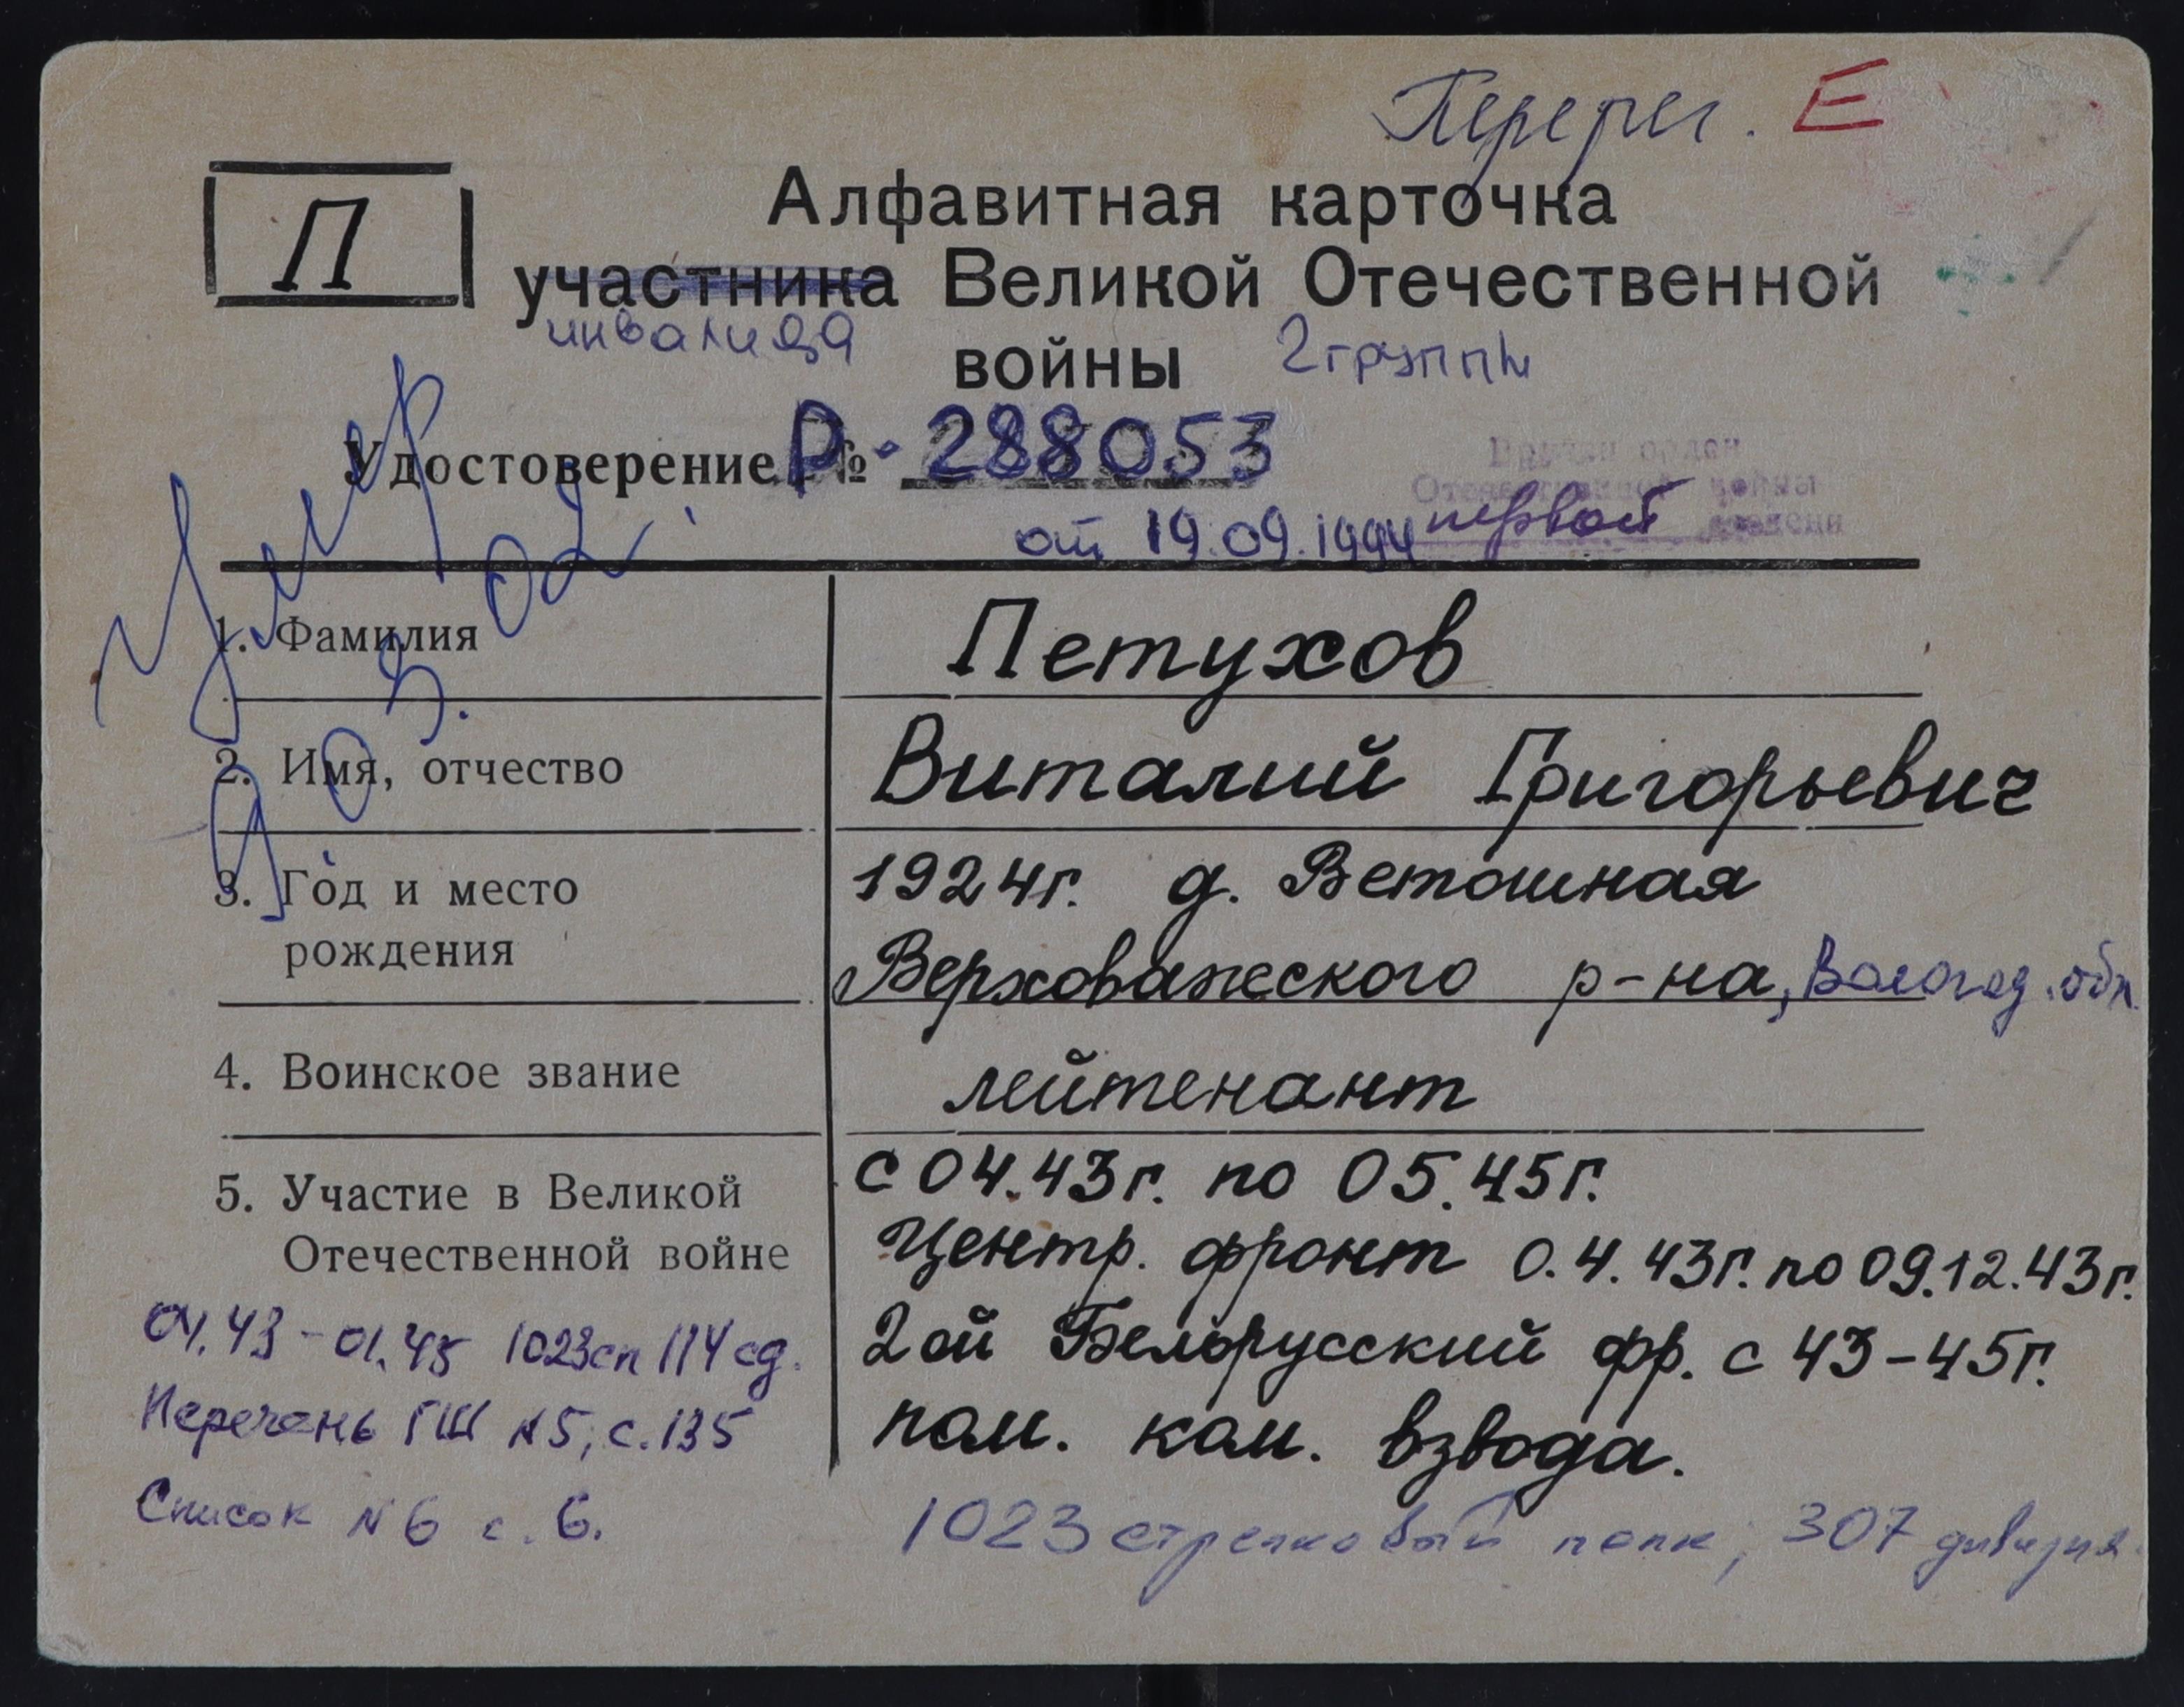 Перерег. Е
П
Алфавитная карточка
участника Великой Отечественной
инвалида войны 2 группы
Удостоверение Р № - 288053
Вручен орден
Отечественной войны
первой степени
от 19.09.1994
Умер
9.03.02
1. Фамилия Петухов
2. Имя, отчество Виталий Григорьевич
3. Год и место 1924г. д. Ветошная
рождения Верховажского р-на, Вологод. обл.
4. Воинское звание лейтенант
5. Участие в Великой с 04.43г. по 05.45г.
Отечественной войне Центр. фронт 0.4.43г. по 09.12.43г.
04.43 - 01.45 1023сп 114 сд. 2ой Белорусский фр. с 43-45г.
Перечень ГШ N5, с. 135 пом. ком. взвода.
Список N6 с. 6. 1023 стрелковый полк, 307 дивизия